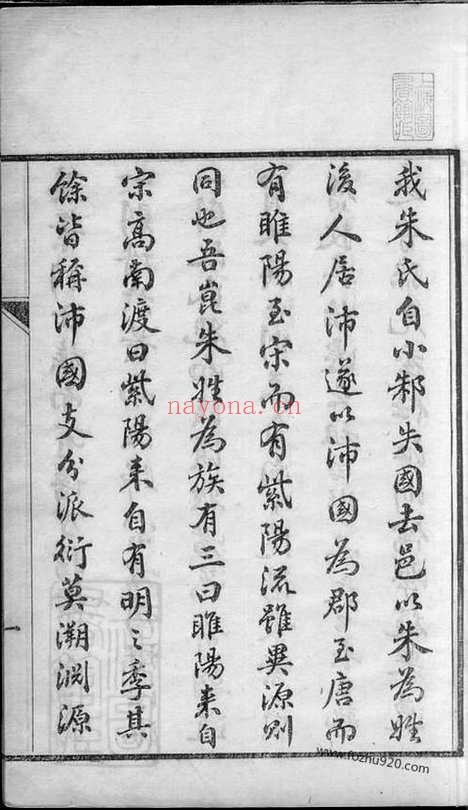 我朱氏自小邾失國去邑以朱為姓
後人居沛遂以沛國為郡至唐而
有睢陽至宋而有紫陽流雖異源則
同也吾崑朱姓為族有三曰睢陽来自
宗高南渡曰紫陽来自有明之季其
餘皆稱沛國支分派衍莫溯淵源
一
nayona.cn
www.fozhu920.com